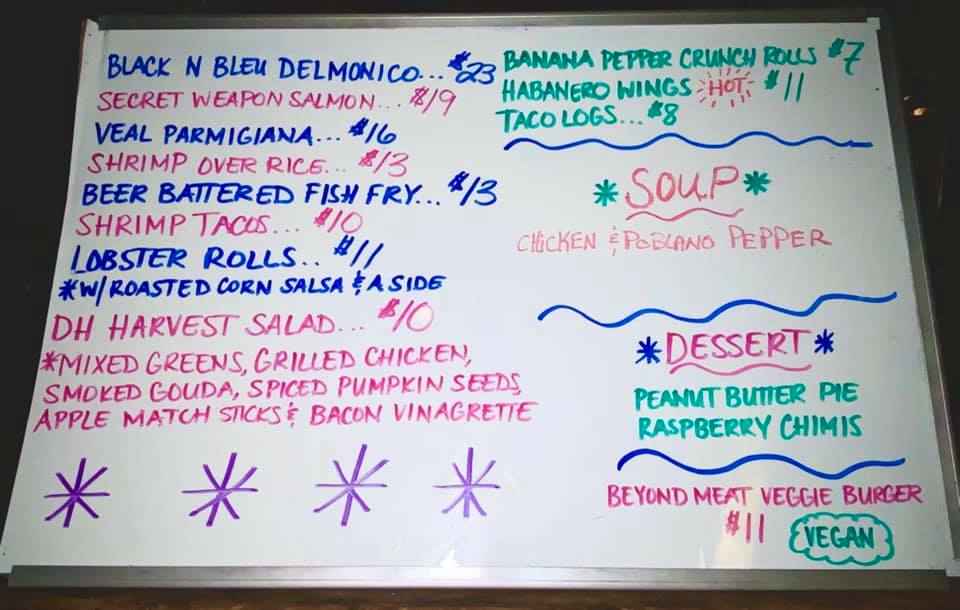 BLACK N BLEU DELMONICO... $23
SECRET WEAPON SALMON... $19
VEAL PARMIGIANA... $16
SHRIMP OVER RICE... $13
BEER BATTERED FISH FRY... $13
SHRIMP TACOS... $10
LOBSTER ROLLS.. $11
*W/ROASTED CORN SALSA & A SIDE
DH HARVEST SALAD... $10
*MIXED GREENS, GRILLED CHICKEN,
SMOKED GOUDA, SPICED PUMPKIN SEEDS,
APPLE MATCH STICKS & BACON VINAGRETTE
BANANA PEPPER CRUNCH ROLLS $7
HABANERO WINGS HOT $11
TACO LOGS... $8
*SOUP*
CHICKEN & POBLANO PEPPER
*DESSERT*
PEANUT BUTTER PIE
RASPBERRY CHIMIS
BEYOND MEAT VEGGIE BURGER
$11 VEGAN